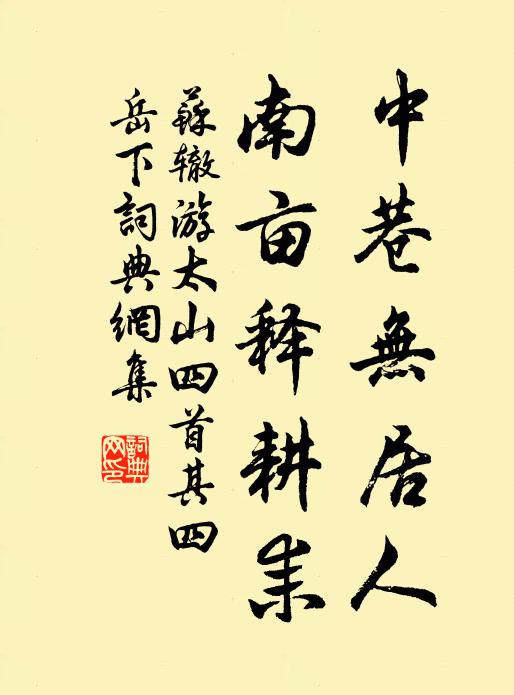 中巷無居人
南亩释耕耒
蘇辙游太山四首其四
岳下詞典網集
詞典网印